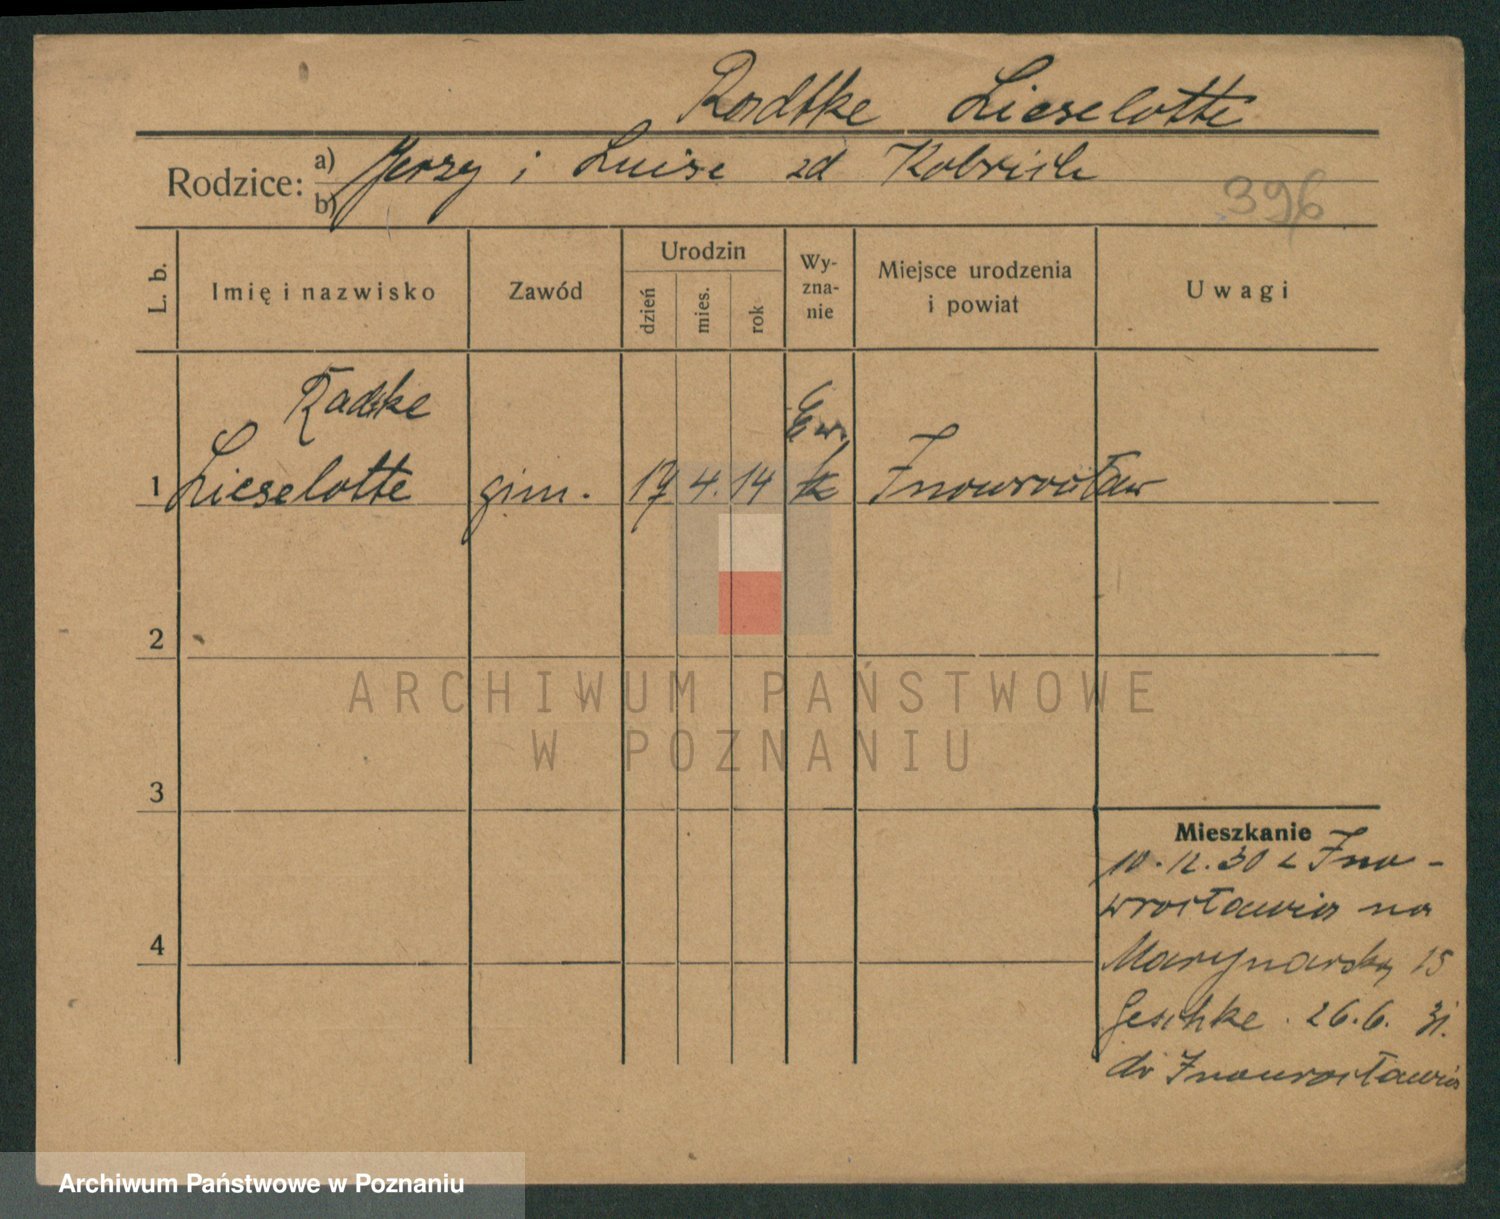 Radtke Lieselotte
Rodzice: a) Jerzy i Luise zd
b)
396
L. b.
Imię i nazwisko
Zawód
Urodzin
dzień
mies.
rok
Wy-
zna-
nie
Miejsce urodzenia
i powiat
Uwagi
Radtke
Ew.
1 Lieselotte gim. 17 4. 14 Inowrocław
2
3
4
Mieszkanie
10.12.30 z Ino-
wrocławia na
Marynarską 15
Geschke. 26.6. 31.
do Inowrocławia
ARCHIWUM PAŃSTWOWE
W POZNANIU
Archiwum Państwowe w Poznaniu